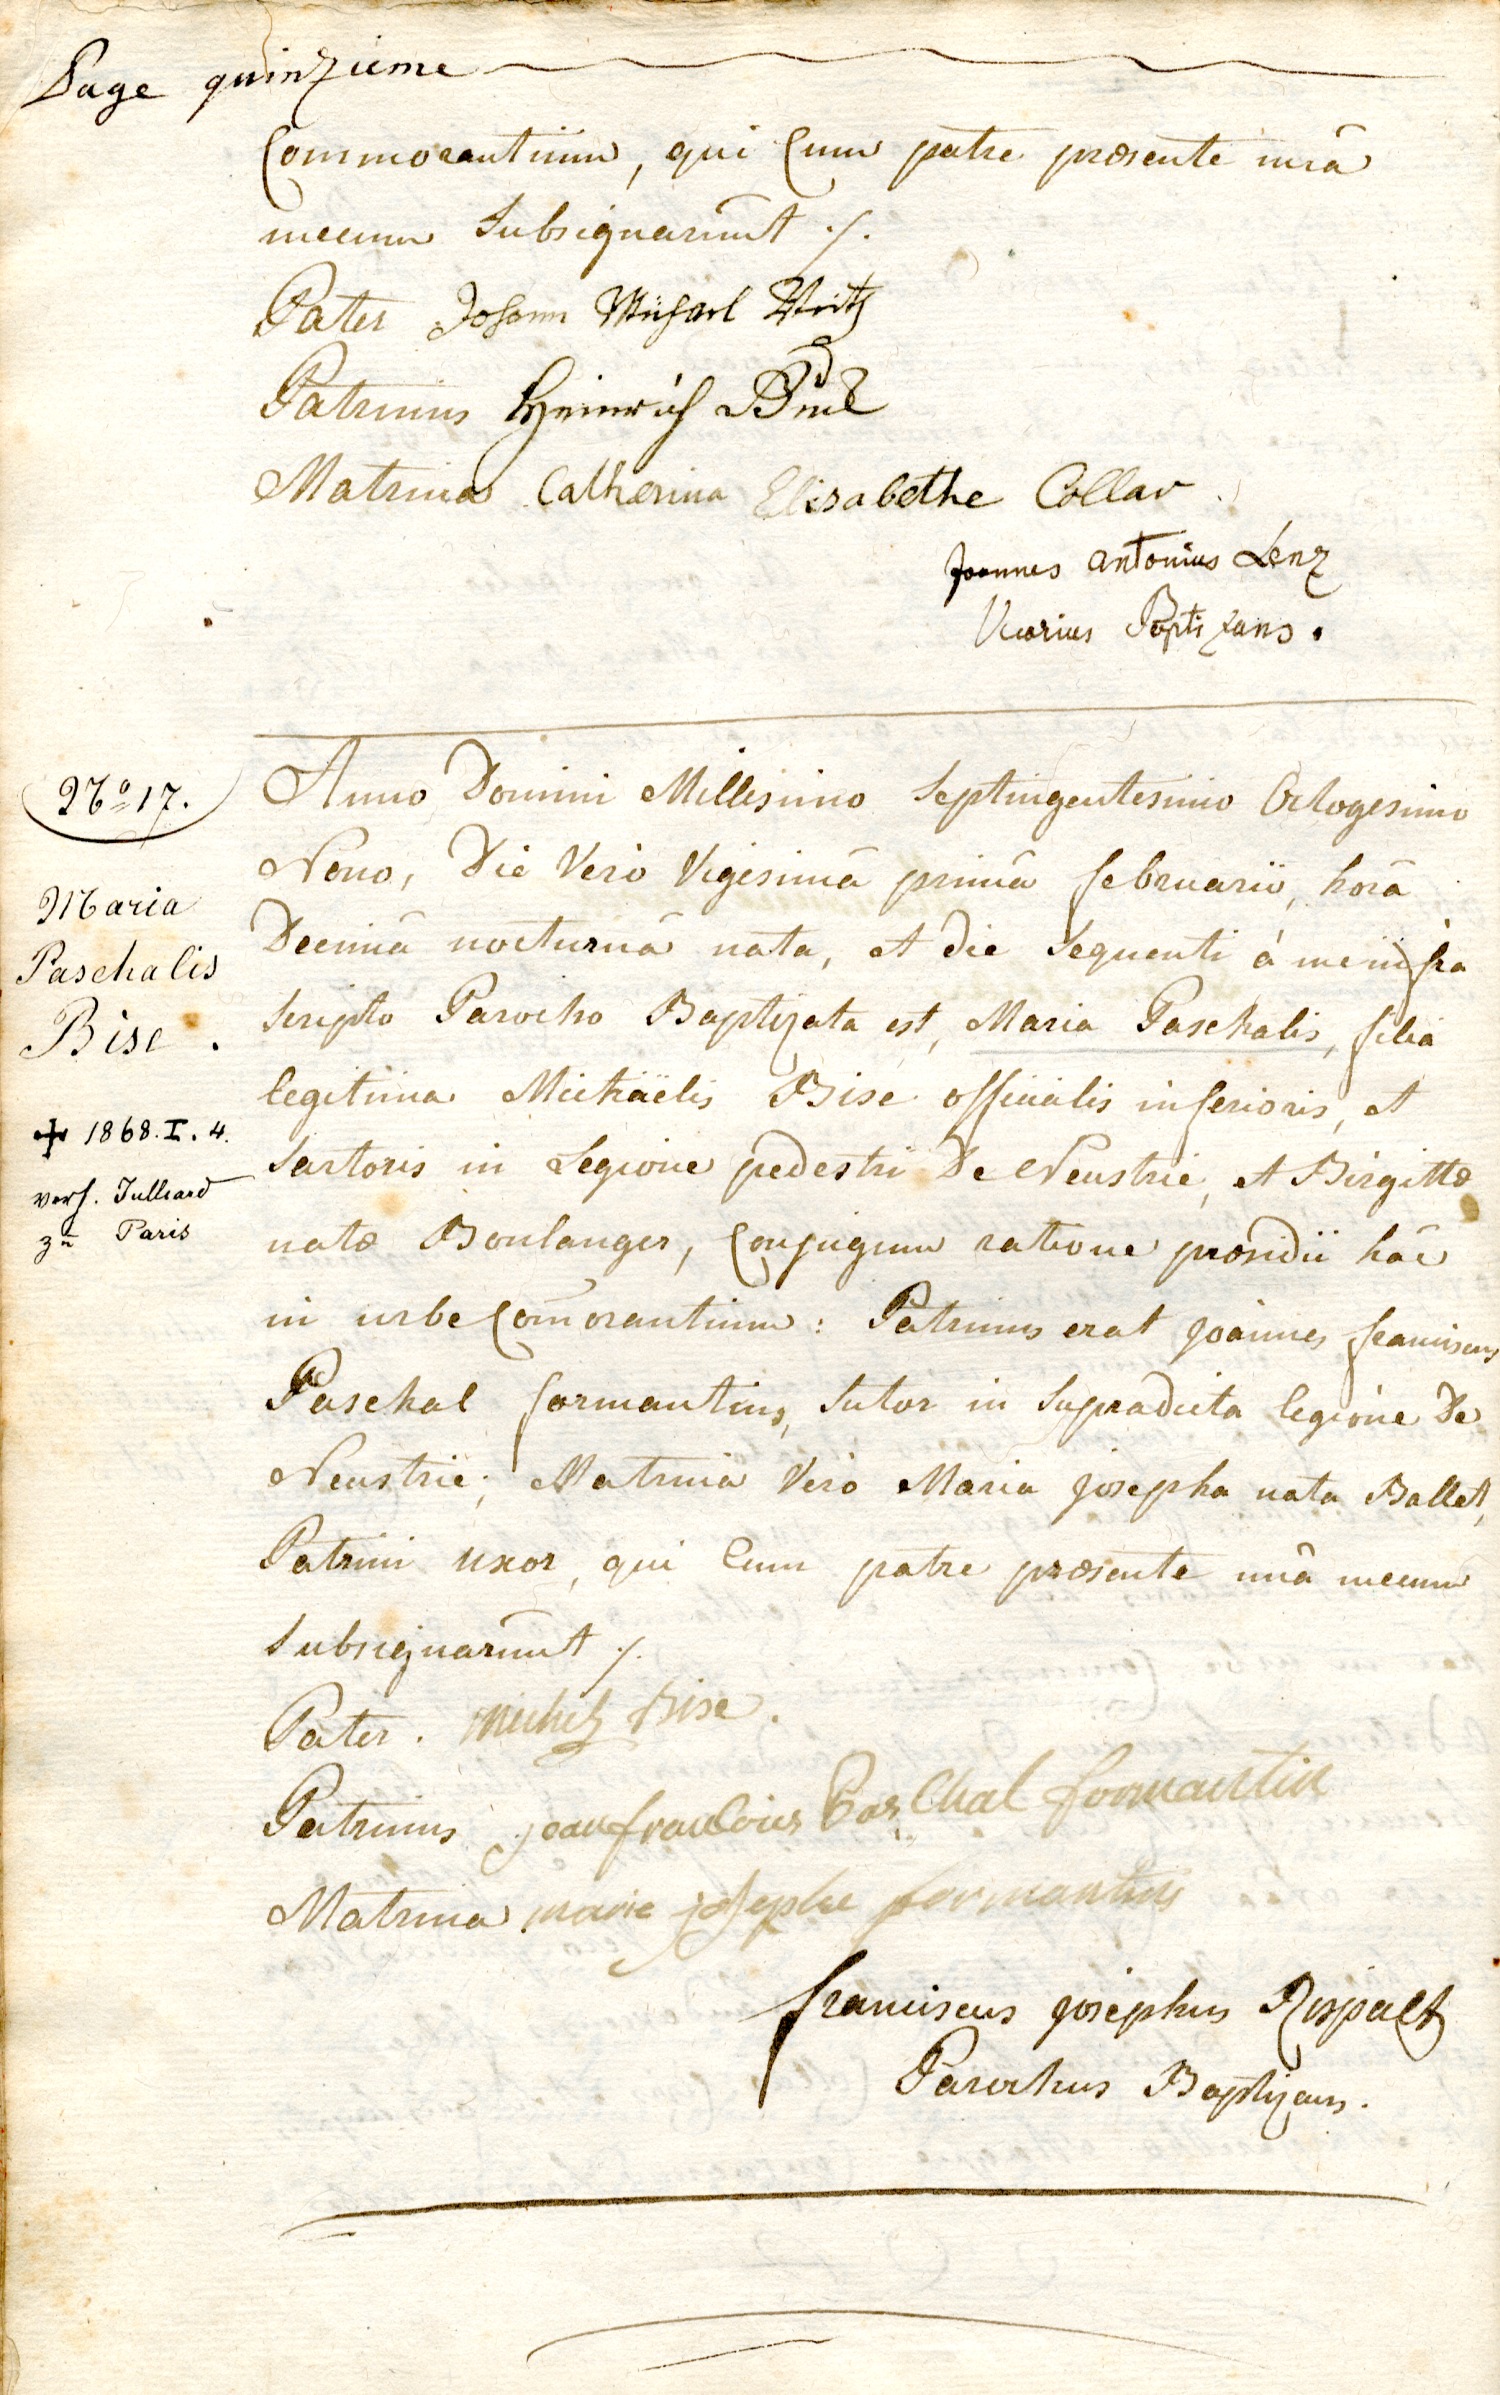 Page quinzieme
Commorantium, qui Cum patre præsente unâ
mecum Subsignarunt ./.
Pater Johann Michael
Patrinus Heinrich
Matrina Catherina Elisabethe Collav
Joannes antonius Lenz
Vicarius Baptizans.
No 17.
Maria
Paschalis
Bise.
+ 1868. I. 4.
verh. Julliard
zu Paris
Anno Domini Millesimo Septingentesimo Octogesimo
Nono, Die Verò Vigesimâ primâ februarii, horâ
Decimâ nocturnâ nata, et die Sequenti à me infra
Scripto Parocho Baptizata est, Maria Paschalis, filia
legitima Michaëlis Bise officialis inferioris, et
Sartoris in Legione pedestri De Neustrie, et Birgittæ
natæ Boulanger, Conjugum ratione præsidii hâc
in urbe Com̄orantium: Patrinus erat Joannes franciscus
Paschal formantins, Sutor in Supradicta legione De
Neustrie; Matrina Verò Maria Josepha nata Ballet,
Patrini uxor, qui Cum patre præsente unâ mecum
Subsignarunt ./.
Pater. Michel Bise.
Patrinus jean francois Paschal formantin
Matrina marie josephe formantins
franciscus josephus Rispalt
Parochus Baptizans.